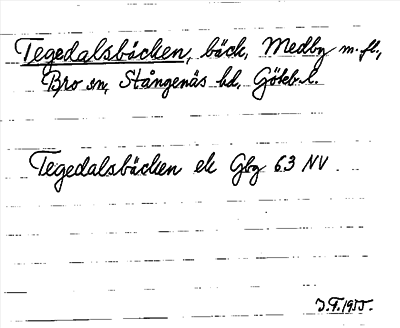 Tegedalsbäcken, bäck, Medby m.fl.,
Bro sn, Stångenäs hd, Götebl.
Tegedalsbäcken ek Gbg 63 NV.
J.F. 1955.